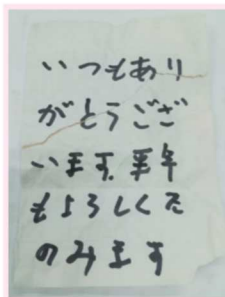 いつもあり
がとうござ
います。来年
もよろしくた
のみます